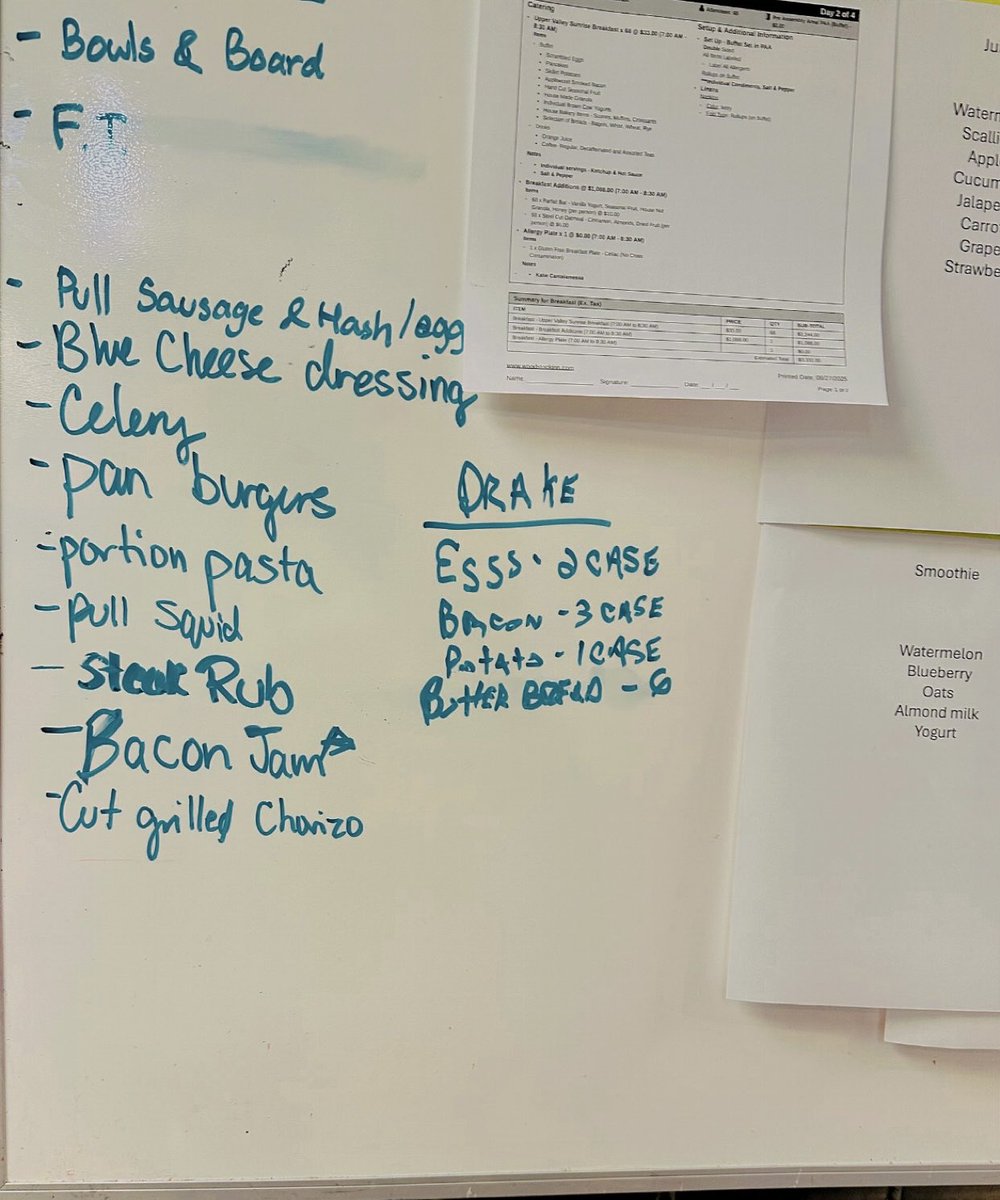 - Bowls & Board
- F.T
- Pull Sausage & Hash/egg
- Blue Cheese dressing
- Celery
- pan burgers
- portion pasta
- pull squid
- steak Rub
- Bacon Jam
- Cut grilled Chorizo
DRAKE
EGGS - 2 CASE
BACON - 3 CASE
POTATO - 1 CASE
BUTTER - 6
Day 2 of 4
Catering
• Upper Valley Sunrise Breakfast x 68 @ $33.00 (7:00 AM - 8:30 AM)
Items
- Buffet
• Scrambled Eggs
• Pancakes
• Skillet Potatoes
• Applewood Smoked Bacon
• Hand Cut Seasonal Fruit
• House Made Granola
• Individual Brown Cow Yogurts
• House Bakery Items - Scones, Muffins, Croissants
• Selection of Breads - Bagels, White, Wheat, Rye
- Drinks
• Orange Juice
• Coffee- Regular, Decaffeinated and Assorted Teas
Notes
• Individual servings - Ketchup & Hot Sauce
• Salt & Pepper
• Breakfast Additions @ $1,088.00 (7:00 AM - 8:30 AM)
Items
- 68 x Parfait Bar - Vanilla Yogurt, Seasonal Fruit, House Nut
Granola, Honey (per person) @ $10.00
- 68 x Steel Cut Oatmeal - Cinnamon, Almonds, Dried Fruit (per
person) @ $6.00
• Allergy Plate x 1 @ $0.00 (7:00 AM - 8:30 AM)
Items
- 1 x Gluten Free Breakfast Plate - Celiac (No Cross
Contamination)
Notes
Setup & Additional Information
• Set Up - Buffet Set in PAA
Double Sided
All Items Labelled
- Label All Allergens
Rollups on Buffet
**Individual Condiments, Salt & Pepper
• Linens
Napkins
- Color: Ivory
- Fold Type: Rollups (on buffet)
Summary for Breakfast (Ex. Tax)
ITEM PRICE QTY SUB-TOTAL
Breakfast - Upper Valley Sunrise Breakfast (7:00 AM to 8:30 AM) $33.00 68 $2,244.00
Breakfast - Breakfast Additions (7:00 AM to 8:30 AM) $1,088.00 1 $1,088.00
Breakfast - Allergy Plate (7:00 AM to 8:30 AM) $0.00
Estimated Total $3,332.00
www.woodstockinn.com
Printed Date: 06/27/2025
Name: Signature: Date: / /
Page: 1 of 2
Ju
Waterm
Scalli
Appl
Cucum
Jalape
Carro
Grape
Strawbe
Smoothie
Watermelon
Blueberry
Oats
Almond milk
Yogurt